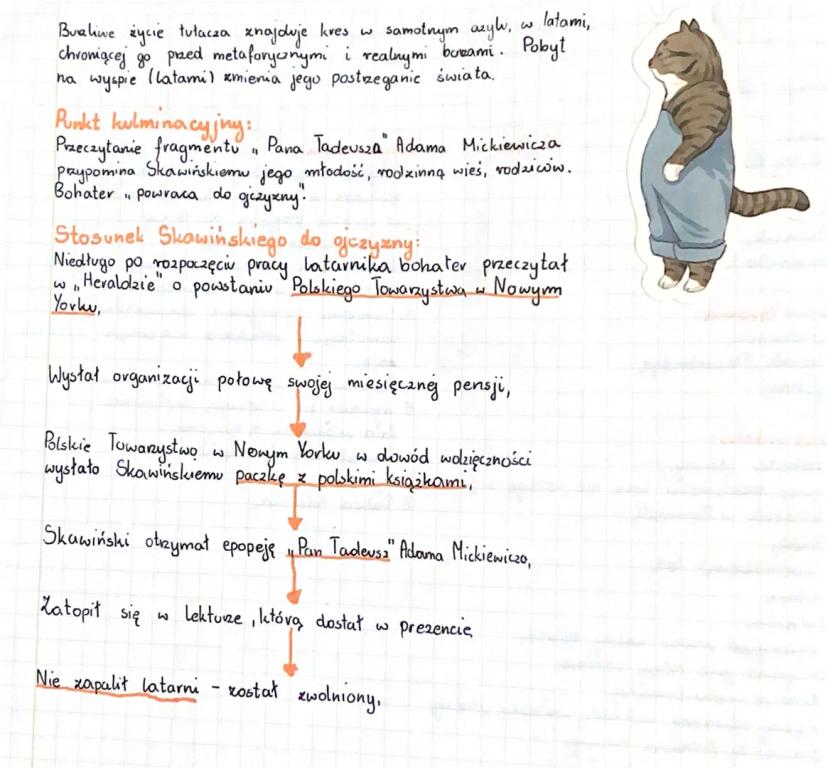 Burzliwe życie tułacza znajduje kres w samotnym azylu, w latarni,
chroniącej go przed metaforycznymi i realnymi burzami. Pobyt
na wyspie (latarni) zmienia jego postrzeganie świata.
Punkt kulminacyjny:
Przeczytanie fragmentu „Pana Tadeusza" Adama Mickiewicza
przypomina Skawińskiemu jego młodość, rodzinną wieś, rodziców.
Bohater „powraca do ojczyzny".
Stosunek Skawińskiego do ojczyzny:
Niedługo po rozpoczęciu pracy latarnika bohater przeczytał
w „Heraldzie" o powstaniu Polskiego Towarzystwa w Nowym
Yorku,
Wysłał organizacji połowę swojej miesięcznej pensji,
Polskie Towarzystwo w Nowym Yorku w dowód wdzięczności
wysłało Skawińskiemu paczkę z polskimi książkami,
Skawiński otrzymał epopeję „Pan Tadeusz" Adama Mickiewicza,
Zatopił się w lekturze, którą dostał w prezencie,
Nie zapalił latarni - został zwolniony,